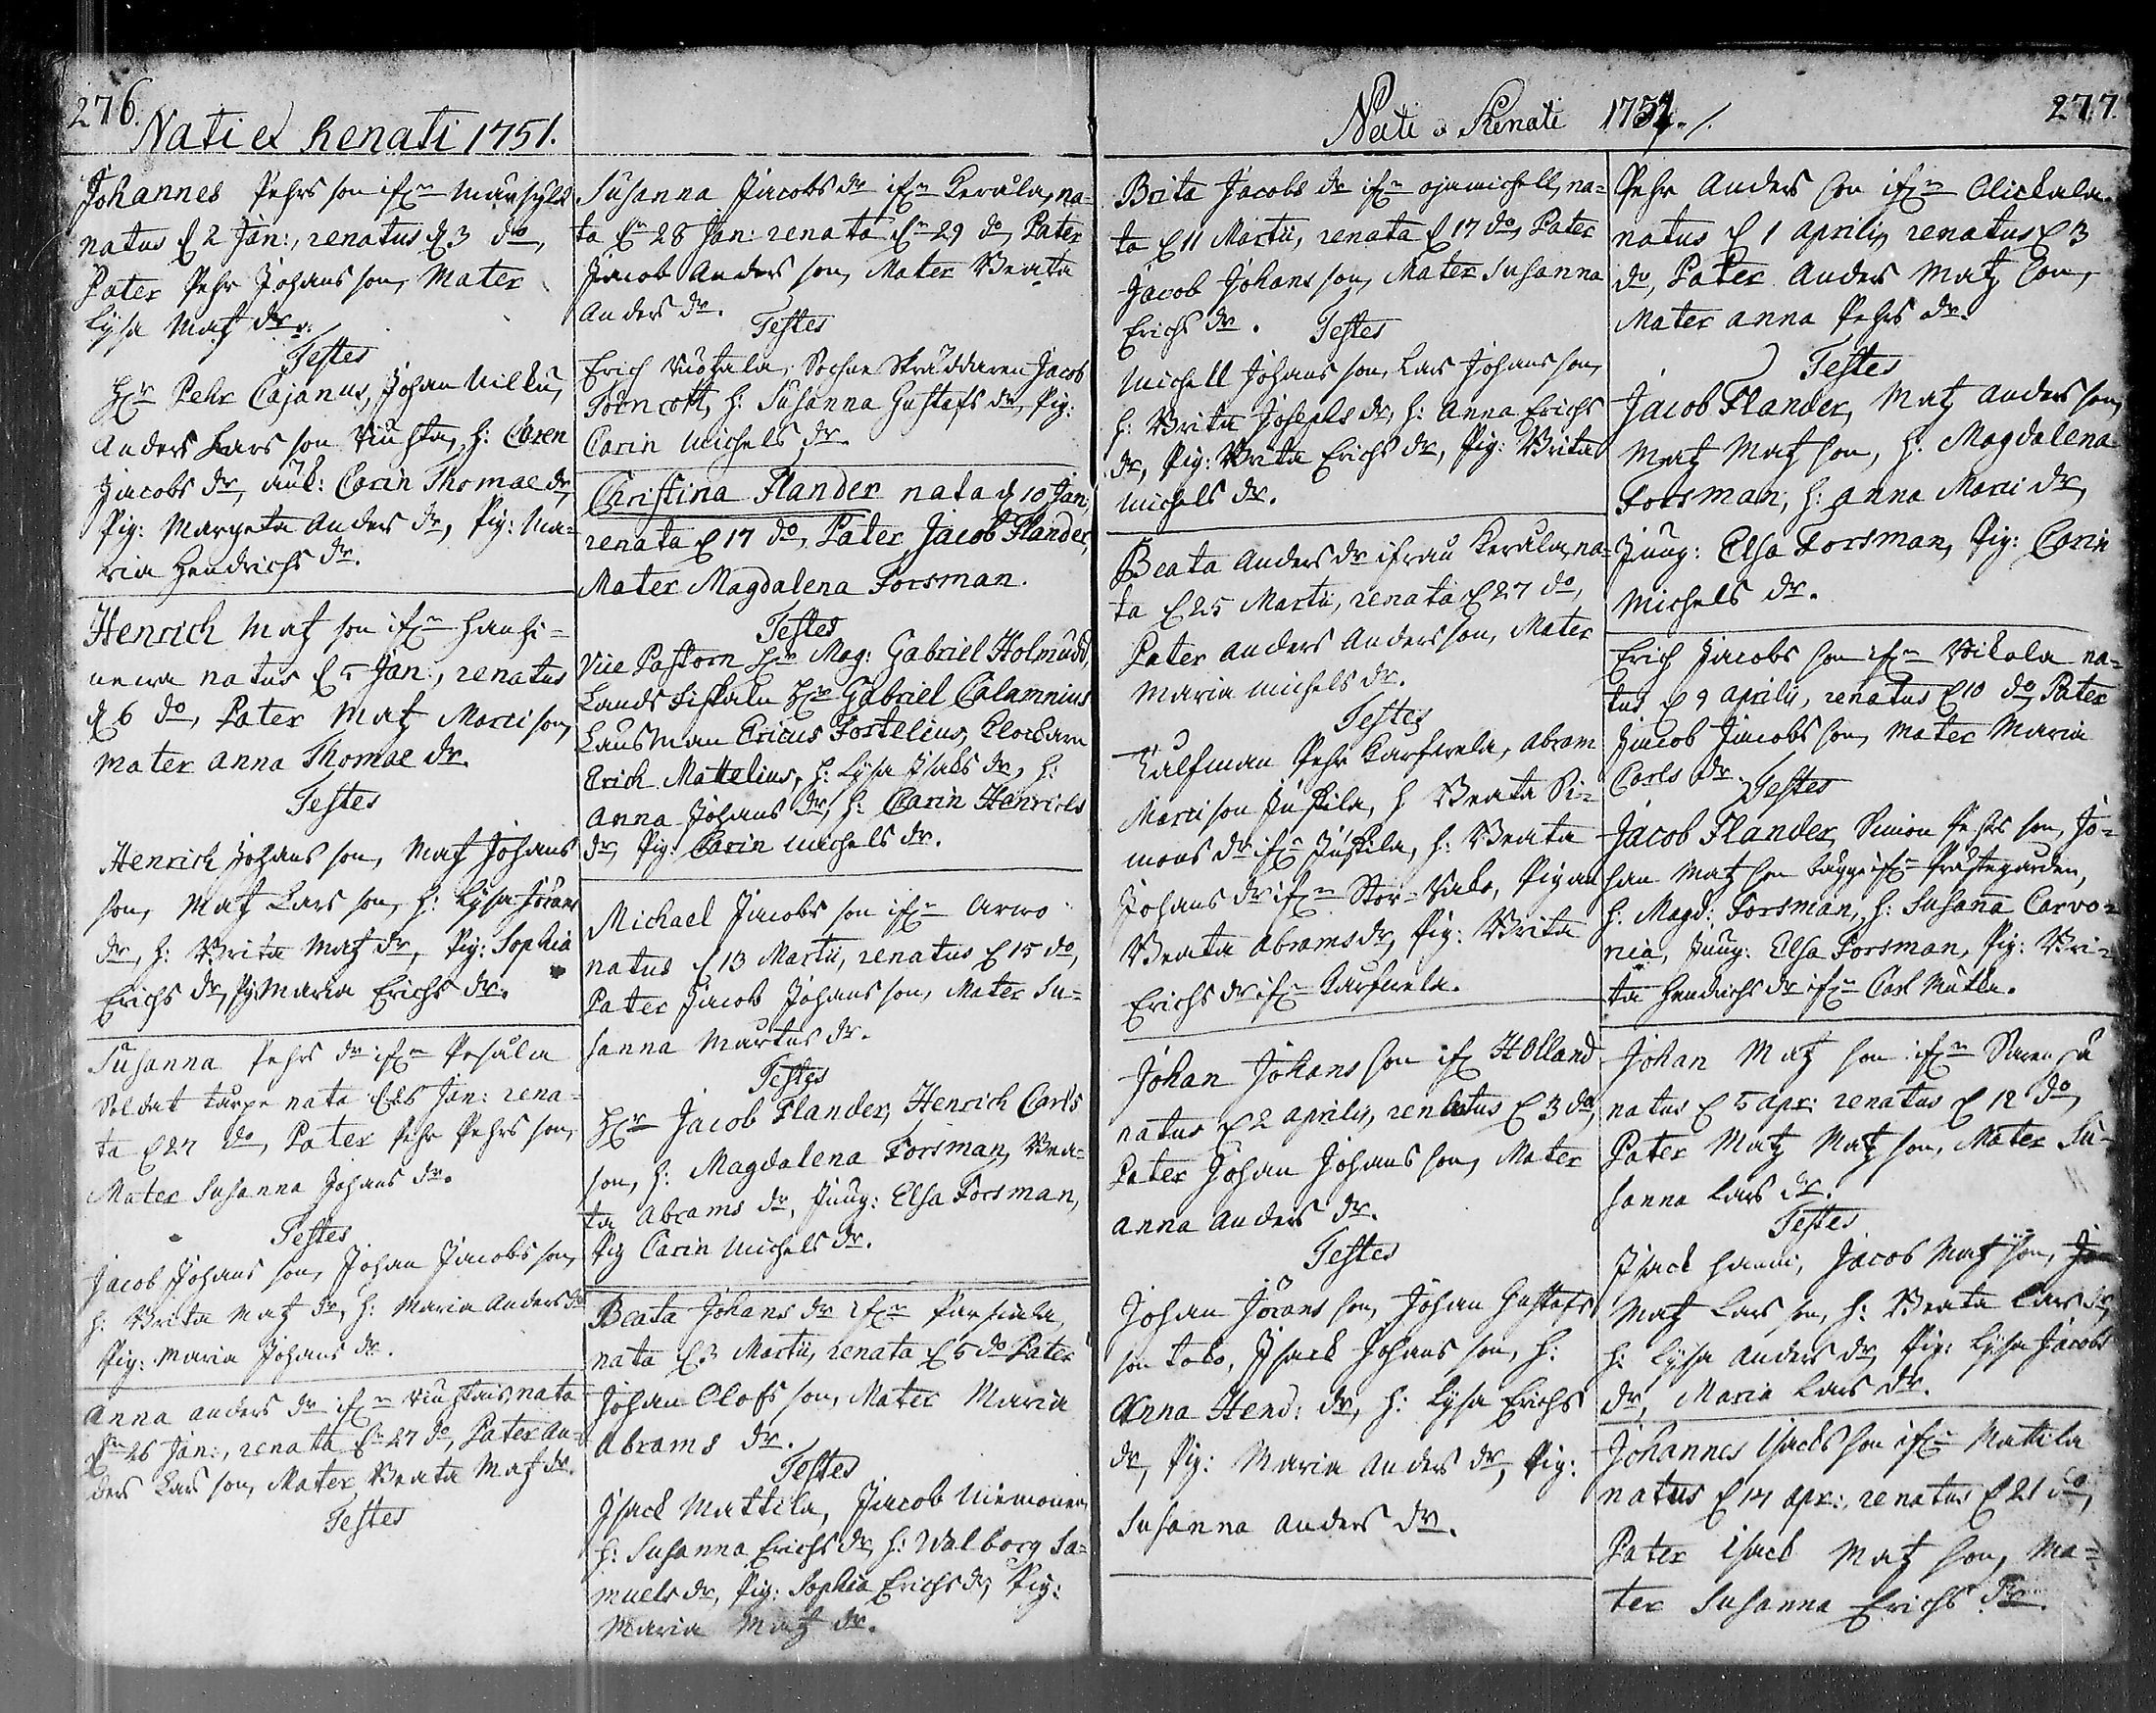 276.
Nati et Renati 1751.
Johannes Pehrs son ifrn
natus d 2 Jan:, renatus d 3 do,
Pater Pehr Johans son, Mater
Lysa Matz dr.
Testes
Hr Pehr Cajanus, Johan Vilku,
Anders Lars son Viuhta, h: Caren
Jacobs dr, änk: Carin Thomae dr,
Pig: Margeta Anders dr, Pig: Ma-
ria Hendrichs dr.
Henrich Matz son ifrn Hanhi-
newa natus d 5 Jan:, renatus
d 6 do, Pater Matz Marci son,
Mater Anna Thomae dr.
Testes
Henrich Johans son, Matz Johans
son, Matz Lars son, h: Lysa Jörans
dr, h: Brita Matz dr, Pig: Sophia
Erichs dr, Pig: Maria Erichs dr.
Susanna Pehrs dr ifrn Pesula
Soldat Turpe nata d 26 Jan: rena-
ta d 27 do, Pater Pehr Pehrs son,
Mater Susanna Johans dr.
Testes
Jacob Johans son, Johan Jacobs son,
h: Brita Matz dr, h: Maria Anders dr
Pig: Maria Johans dr.
Anna Anders dr ifrn nata
dn 26 Jan:, renata dn 27 do, Pater An-
ders Lars son, Mater Beata Matz dr.
Testes
Susanna Jacobs dr ifrn Kerula, na-
ta dn 28 Jan: renata dn 29 do, Pater
Jacob Anders son, Mater Beata
Anders dr.
Testes
Erich Sochne Skräddaren Jacob
Törncott, h: Susanna Gustafs dr, Pig:
Carin Michels dr.
Christina Flander nata d 10 Jan:
renata d 17 do, Pater Jacob Flander,
Mater Magdalena Forsman.
Testes
Vice Pastorn Hr Mag: Gabriel Holmudd,
Lands Fiskaln Hr Gabriel Calamnius
Länsman Ericus Fortelius, Clockarn
Erich Mattelius, h: Lysa Isaks dr, h:
Anna Johans dr, h: Carin Henrichs
dr, Pig: Carin Michels dr.
Michael Jacobs son ifrn Arwo
natus d 13 Martii, renatus d 15 do,
Pater Jacob Johans son, Mater Su-
sanna Martus dr.
Testes
Hr Jacob Flander, Henrich Carls
son, h: Magdalena Forsman, Bea-
ta Abrams dr, Jung: Elsa Forsman,
Pig Carin Michels dr.
Beata Johans dr ifrn
nata d 3 Martii, renata d 5 do Pater
Johan Olofs son, Mater Maria
Abrams dr.
Testes
Isack Mattila, Jacob Niemonen,
h: Susanna Erichs dr, h: Walborg Sa-
muels dr, Pig: Sophia Erichs dr, Pig:
Maria Matz dr.
Nati & Renati 1751. /.
277.
Brita Jacobs dr ifrn Ojamichell, na-
ta d 11 Martii, renata d 17 do, Pater
Jacob Johans son, Mater Susanna
Erichs dr. Testes
Michell Johans son, Lars Johans son,
h: Brita Josephs dr, h: Anna Erichs
dr, Pig: Brita Erichs dr, Pig: Brita
Michels dr.
Beata Anders dr ifrån Kerula, na-
ta d 25 Martii, renata d 27 do,
Pater Anders Anders son, Mater
Maria Michels dr.
Testes
Pehr Karhwela, Abram
Marci son Juskila, h Beata Si-
mons dr ifrn Juskila, h: Beata
Johans dr ifrn Stor-Sako, Pigan
Beata Abrams dr, Pig: Brita
Erichs dr ifrn Karhuela.
Johan Johans son ifr Holland
natus d 2 Aprilis, renatus d 3 do,
Pater Johan Johans son, Mater
Anna Anders dr.
Testes
Johan Jörans son, Johan Gustafs
son Toko, Isack Johans son, h:
Anna Hend: dr, h: Lysa Erichs
dr, Pig: Maria Anders dr, Pig:
Susanna Anders dr.
Pehr Anders son ifrn Alickala.
natus d 1 Aprilis renatus d 3
do, Pater Anders Matz Son,
Mater Anna Pehrs dr.
Testes
Jacob Flander, Matz Anders son,
Matz Matz son, h: Magdalena
Forsman, h: Anna Marci dr,
Jung: Elsa Forsman, Pig: Carin
Michels dr.
Erich Jacobs son ifrn Wikola na-
tus d 9 Aprilis, renatus d 10 do, Pater
Jacob Jacobs son, Mater Maria
Carls dr. Testes
Jacob Flander, Simon Pehrs son, Jo-
han Matz son ifrn Prästegården,
h: Magd: Forsman, h: Susana Carvo-
nia, Jung: Elsa Forsman, Pig: Bri-
ta Hendrichs dr ifrn Carl Mutka.
Johan Matz son ifrn
natus d 5 Apr: renatus d 12 do,
Pater Matz Matz son, Mater Su-
sanna Lars dr.
Testes
Isack Hanni, Jacob Matz son,
Matz Lars son, h: Beata Lars dr,
h: Lysa Anders dr, Pig: Lysa Jacobs
dr, Maria Lars dr.
Johannes Isacks son ifrn Matila
natus d 14 Apr:, renatus d 21 do,
Pater Isack Matz son, Ma-
ter Susanna Erichs Dr.